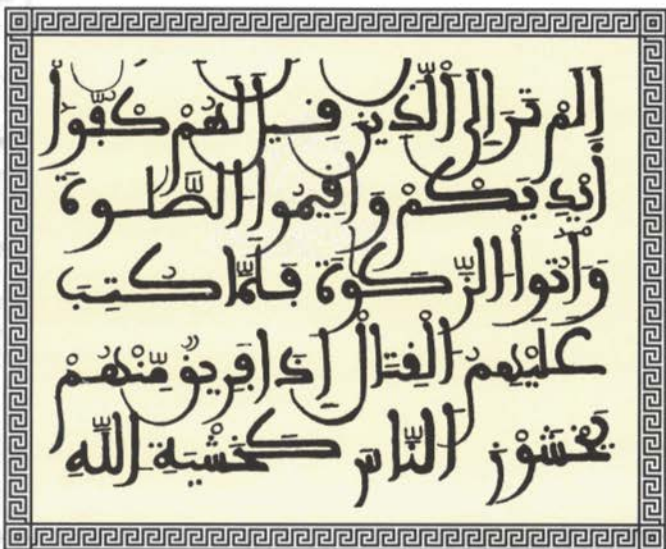 اَلَمْ تَرَ إِلَى اَلَّذِينَ قِيلَ لَهُمْ كُفُّوٓاْ
أَيْدِيَكُمْ وَأَقِيمُواْ اُلصَّلَوٰةَ
وَءَاتُواْ اُلزَّكَوٰةَ فَلَمَّا كُتِبَ
عَلَيْهِمُ اُلْقِتَالُ إِذَا فَرِيقٌ مِّنْهُمْ
يَخْشَوْنَ اَلنَّاسَ كَخَشْيَةِ اِللَّهِ